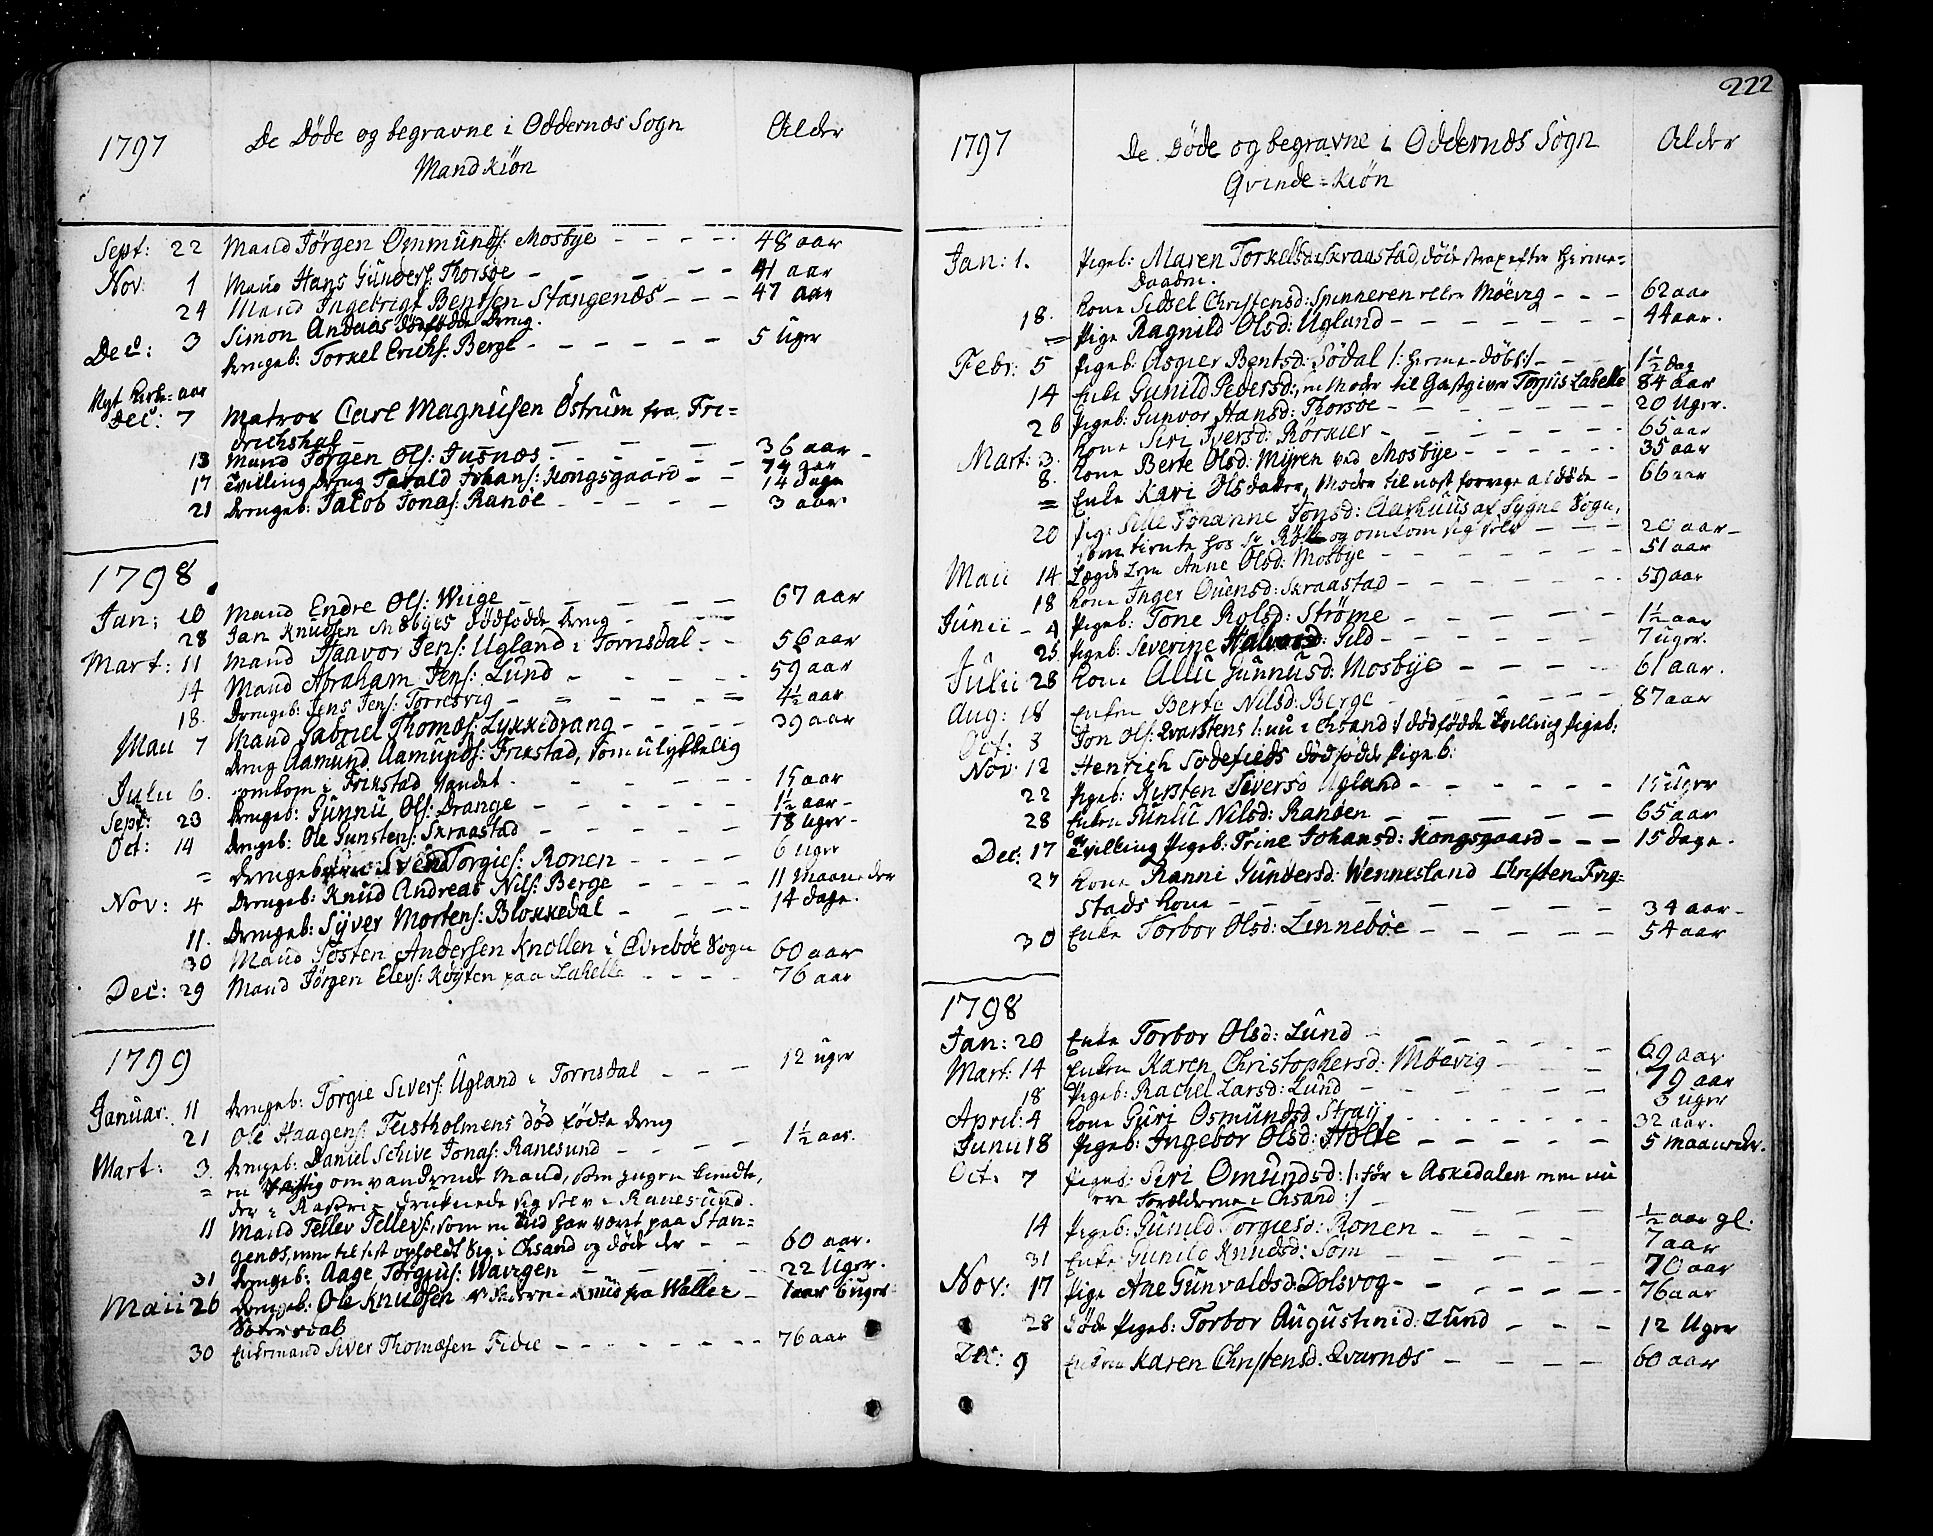 1797
De Døde og begravne i Oddernæs Sogn
Mandkiön
Alder
Sept: 22 Mand Jörgen Ommunds: Mosbye - - - - 48 aar
Nov: 1 Mand Hans Gunders: Thorsøe - - - - 41 aar
24 Mand Ingebrigt Bentsen Stangenæs - - - 47 aar
Dec: 3 Simon Andaas dödfödde Dreng.
Drengeb: Torkel Erichs: Berge - - - - - - 5 Uger
Nyt Kirke-aar
Dec: 7 Matros Carl Magnusen Östrum fra Fri=
drichshal - - - - - 36 aar
13 Mand Jörgen Ols: Jusnæs - - - - - 74 aar
17 Tvilling Dreng Tarald Johans: Kongsgaard - - 14 dage
21 Drengeb: Jacob Jonas: Ranöe - - - - - 3 aar
1798.
Jan: 10 Mand Endre Ols: Wiige - - - - - 67 aar
28 Jan Knudsen Mosbyes dödfödde Dreng - - -
Mart: 11 Mand Haavor Jens: Ugland i Tornsdal - - 56 aar
14 Mand Abraham Jens: Lund - - - - - 59 aar
18. Drengeb: Jens Jens: Torresvig - - - - - 4½ aar
Maii 7 Mand Gabriel Thomæs: Lykkedrang - - - - - 39 aar
Dreng Aamund Aamunds: Frikstad, som ulykkelig
Julii 6. omkom i Frikstad Vandet - - - - - 15 aar
Sept: 23 Drengeb: Gunnu Ols: Drange - - - - - 1½ aar -
Oct: 14 Drengeb: Ole Gunstens: Skraastad - - - - - 18 Uger -
= Drengeb: Svend Torgies: Ronen - - - - 6 Uger
Nov: 4 Drengeb: Knud Andreas Nils: Berge - - - - 11 Maaneder
11. Drengeb: Syver Mortens: Blokkedal - - - - 14 dage.
30 Mand Tosten Andersen Knollen i Øvrebøe Sogn 60 aar
Dec: 29 Mand Jörgen Elevs: Køyten paa Lahelle - - - - 76 aar
1799
Januar: 11 Drengeb: Torgie Sivers: Ugland i Tornsdal - - - 12 uger
21 Ole Haagens: Teistholmens död födte Dreng
Mart: 3. Drengeb: Daniel Schive Jonas: Ranesund - - - - 1½ aar.
= en omvandrende Mand, som ingen kiendte,
der i druknede sig selv i Ranesund.
11 Mand Tellev Tellevs:, som en tid har været paa Stan=
genæs, men til sist opholdt sig i Chsand og døde der - - 60 aar.
31 Drengeb: Aage Torgius: Waregen - - - - 22 Uger.
Maii 26 Drengeb: Ole Knudsen fra Walle i - 1 aar 6 uger
Sætersdal
30 Enkemand Siver Thomæsen Fidie - - - - - - - 76 aar
222
1797
De Døde og begravne i Oddernæs Sogn
Qvinde=kiön
Alder
Jan: 1. Pigeb: Maren Torkelsd: Skraastad, döde strax efter Hieme=
Daaben.
18. Kone Sidsel Christensd: Spinneren eller Möevig - - - 62 aar
= Pige Ragnild Olsd: Ugland - - - - - - - 44 aar.
Febr: 5 Pigeb: Asgier Bentsd: Södal /: hieme-döbt :/ - - - 1½ Dag
14 Enke Gunild Pedersd:, en Moder til Gastgiver Torjus Lahelle 84 aar
26 Pigeb: Gunvor Hansd: Thorsøe - - - - - - 20 Uger.
Mart: 3. Kone Siri Iversd: Rörkier - - - - - - 65 aar
8. Kone Berte Olsd: Myren ved Mosbye - - - - - 35 aar
= Enke Kari Olsdatter, Moder til næst forrige afdöde - 66 aar
20 Pige Johanne Jonsd: Aarhuus af Sygne Sogn,
som tiente hos Sr og omkom sig selv - - - 20 aar -
Maii 14 Lægds Lem Anne Olsd: Mosbye - - - - - 51 aar
18 Kone Inger Ouensd: Skraastad - - - - - 59 aar
Junii - 4 Pigeb: Tone Rolsd: Ströme - - - - - 1½ aar
25 Pigeb: Severine Halvorsd: Gild - - - - - 7 uger.
Julii 28 Kone Allu Gunnusd: Mosbye - - - - - 61 aar.
Aug: 18 Enken Berte Nilsd: Berge - - - - - 87 aar
Oct: 3 Jon Ols: Qvarstens /: nu i Chsand :/ dödfödde Tvilling Pigeb:
Nov: 12 Henrich Sodefieds dödfödde Pigeb:
22 Pigeb: Kirsten Siversd Ugland - - - - - - 15 Uger
28 Enken Gunlu Nilsd: Ranöen - - - - - - 65 aar
Dec: 17 Tvilling Pigeb: Trine Johansd: Kongsgaard - - - 15 dage.
27 Kone Ranni Gundersd: Wennesland Christen Frig=
stads Kone - - - - - - - 34 aar -
30 Enke Torbor Olsd: Lennebøe - - - - - 54 aar
1798
Jan: 20 Enke Torbor Olsd: Lund - - - - - - 69 aar
Mart: 14 Enken Karen Christophersd: Möevig - - - - 79 aar
18 Pigeb: Rachel Larsd: Lund - - - - - - 3 uger
April: 4 Kone Guri Osmundsd Straÿ - - - - - - 32 aar.
Junii 18 Pigeb: Ingebor Olsd: Holte - - - - - - 5 maaneder.
Oct: 7 Pigeb: Siri Omundsd: /: för i Askedalen men nu
ere Forældrene i Chsand :/ ½ aar gl:
14 Pigeb: Gunild Torgiesd: Ronen - - - - - 7 aar
31 Enke Gunild Knudsd: Som - - - - - - 70 aar
Nov: 17 Pige Ane Gunvaldsd: Dolsvog - - - - - - 76 aar
28 döde Pigeb: Torbor Augustinid: Lund - - - - 12 Uger
Dec: 9 Enken Karen Christensd. Qvarnæs - - - - - 60 aar